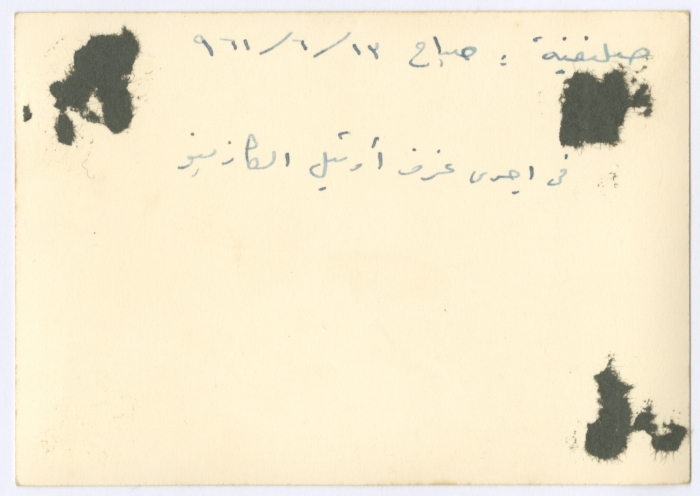 صلنفة : صباح ١٣/٦/٩٦١
في احدى غرف أوتيل الكازينو